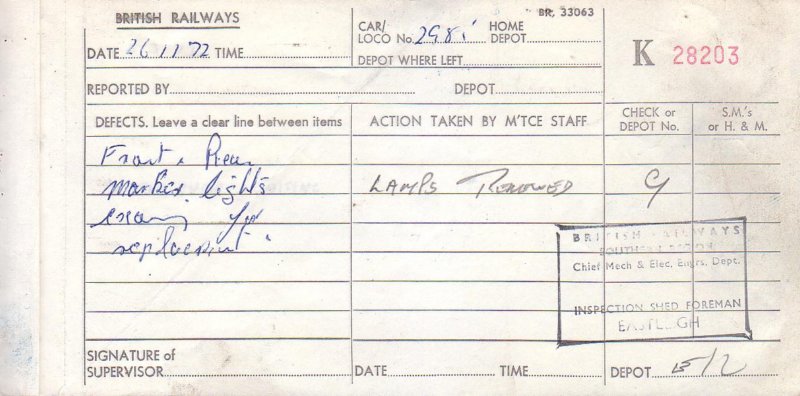 BRITISH RAILWAYS
BR. 33063
DATE 26 11 72 TIME
CAR/
LOCO No. 2981
HOME
DEPOT
DEPOT WHERE LEFT
K 28203
REPORTED BY
DEPOT
DEFECTS. Leave a clear line between items
ACTION TAKEN BY M'TCE STAFF
CHECK or
DEPOT No.
S.M.'s
or H. & M.
Front & Rear
marker lights
LAMPS RENEWED
for
replacement
BRITISH RAILWAYS
SOUTHERN REGION
Chief Mech & Elec. Engrs. Dept.
INSPECTION SHED FOREMAN
EASTLEIGH
SIGNATURE of
SUPERVISOR
DATE
TIME
DEPOT